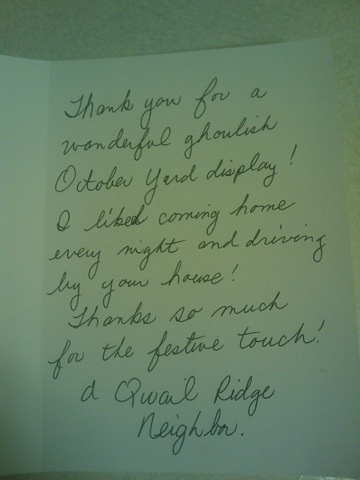 Thank you for a
wonderful ghoulish
October Yard display!
I liked coming home
every night and driving
by your house!
Thanks so much
for the festive touch!
a Qwail Ridge
Neighbor.